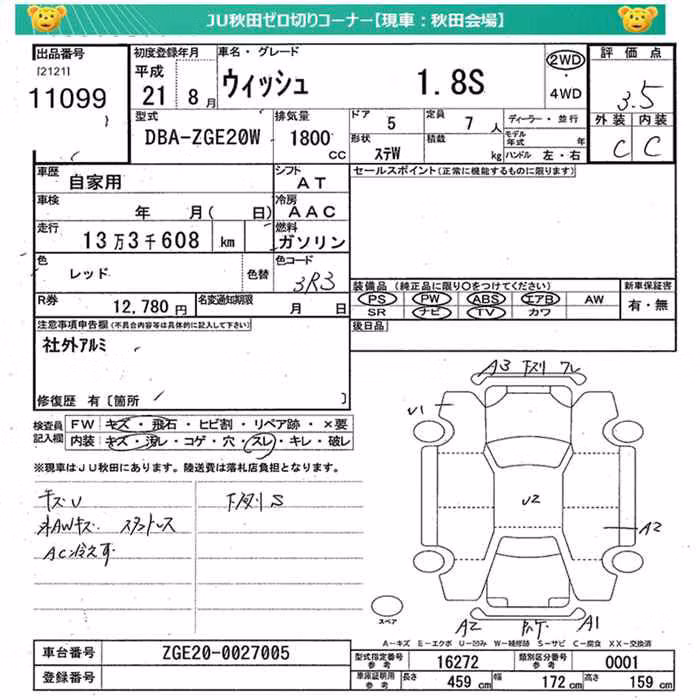 JU秋田ゼロ切りコーナー【現車：秋田会場】
出品番号
[2121]
11099
初度登録年月
平成
21 年 8 月
車名・グレード
ウィッシュ 1.8S
2WD
・
4WD
評価点
3.5
外装 内装
C C
型式
DBA-ZGE20W
排気量
1800
CC
ドア 5
定員 7 人
形状 ｽﾃW
積載 kg
ディーラー・並行
モデル年式 年
ハンドル 左・右
車歴 自家用
シフト AT
車検 年 月( 日)
冷房 AAC
走行 13万3千608 km
燃料 ガソリン
色 レッド 色替
色コード 3R3
R券 12,780 円
名変通知期限 月 日
セールスポイント(正常に機能するものに限ります)
装備品（純正品に限り○をつけてください）
PS PW ABS エアB AW
SR ナビ TV カワ
新車保証書
有・無
後日品
注意事項申告欄(不具合内容等は具体的に記入して下さい)
社外ｱﾙﾐ
修復歴 有〔箇所 〕
検査員記入欄
FW キズ・飛石・ヒビ割・リペア跡・×要
内装 キズ・汚レ・コゲ・穴・スレ・キレ・破レ
※現車はＪＵ秋田にあります。陸送費は落札店負担となります。
キズU
AWキズ スタットレス
AC冷えず
下廻りS
A3 下スリ ワレ
U1
U2
A2
A2 A1
スペア
A－キズ E－エクボ U－凹み W－補修跡 S－サビ C－腐食 XX－交換済
車台番号 ZGE20-0027005
登録番号
型式指定番号 参考 16272
類別区分番号 参考 0001
車庫証明用 参考 長さ 459 cm 幅 172 cm 高さ 159 cm